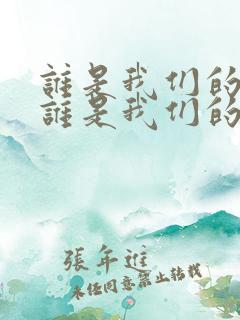 誰是我们的
誰是我们的
張年進
未任同意禁止转载